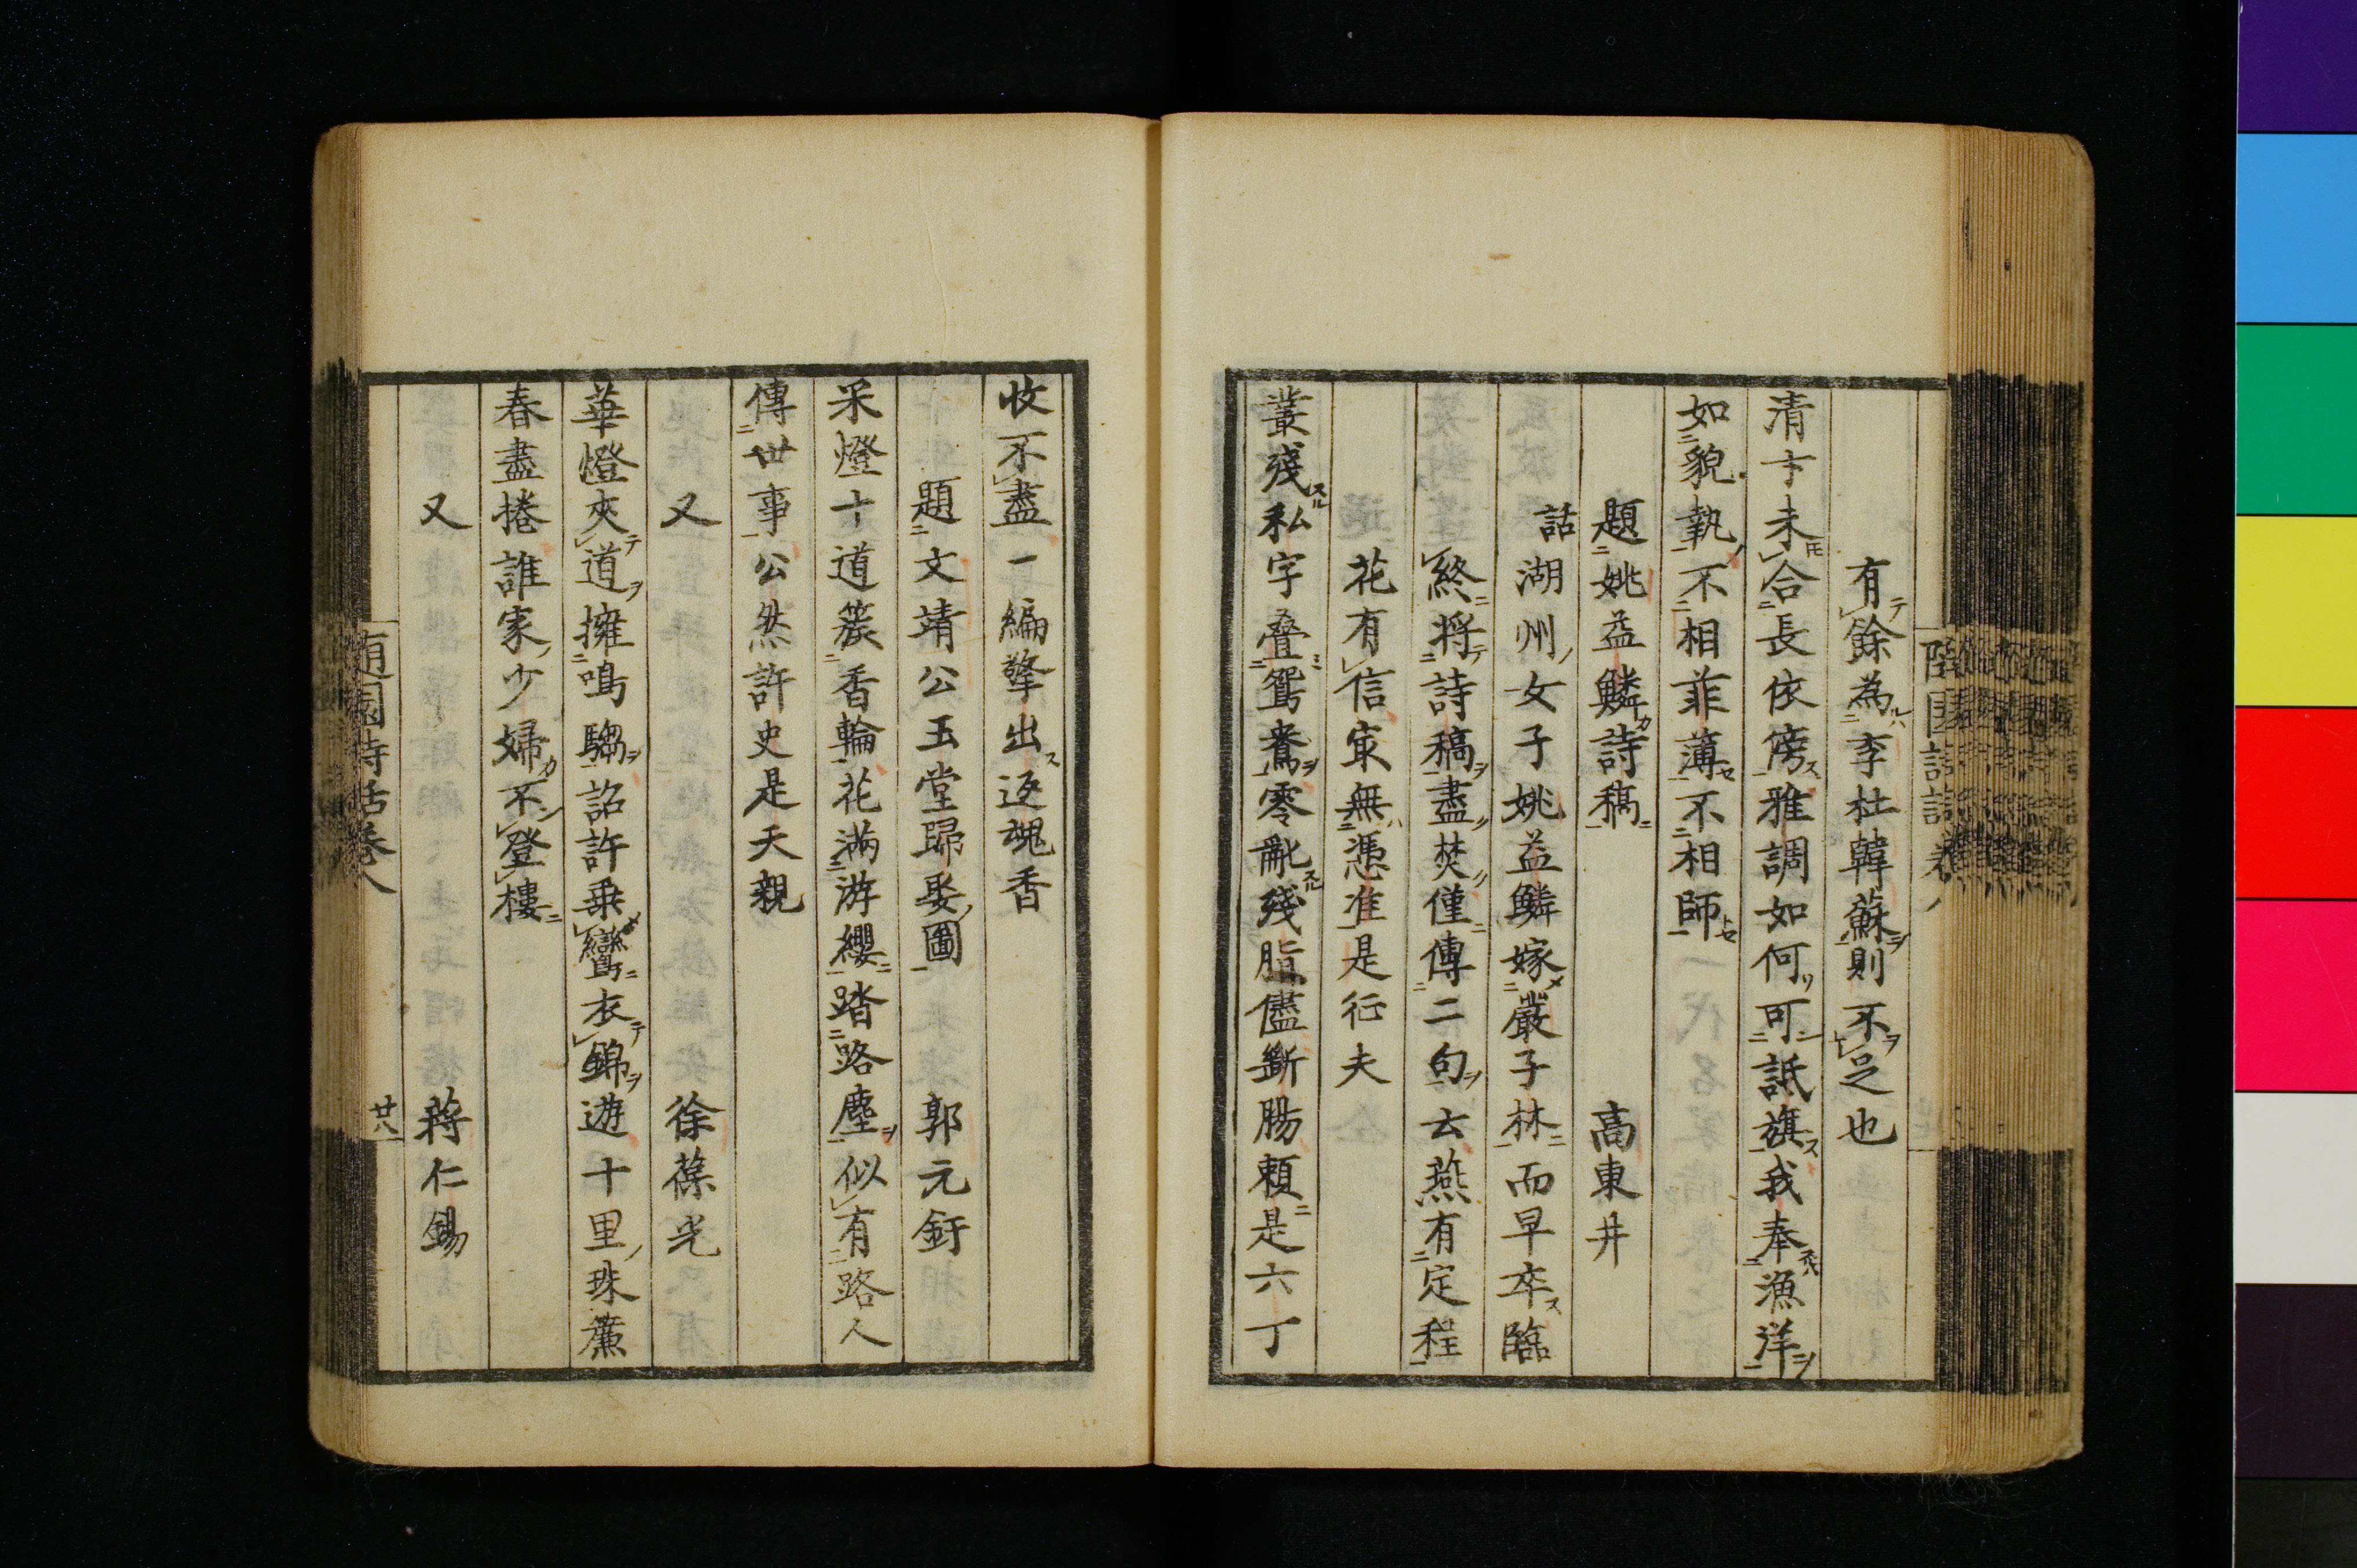 有餘為李杜韓蘇則不足也
清才未合長依傍雅調如何可詆旗我奉漁洋
如貌執不相菲薄不相師
題姚益鱗詩稿 高東井
湖州女子姚益鱗嫁嚴子林而早卒臨
終將詩稿盡焚僅傳二句云燕有定程
花有信㝡無憑准是行夫
叢殘私字疊鴛鴦零亂殘脂儘斷腸頼是六丁
收不盡一編擎出返魂香
題文靖公玉堂歸娶圖 郭元釪
采燈十道簇香輪花滿游纓踏路塵似有路人
傳世事公然許史是天親
又 徐葆光
華燈夾道擁鳴騶詔許乗鸞衣錦遊十里珠簾
春盡捲誰家少婦不登樓
又 蔣仁錫
隨園詩話卷八
廿八